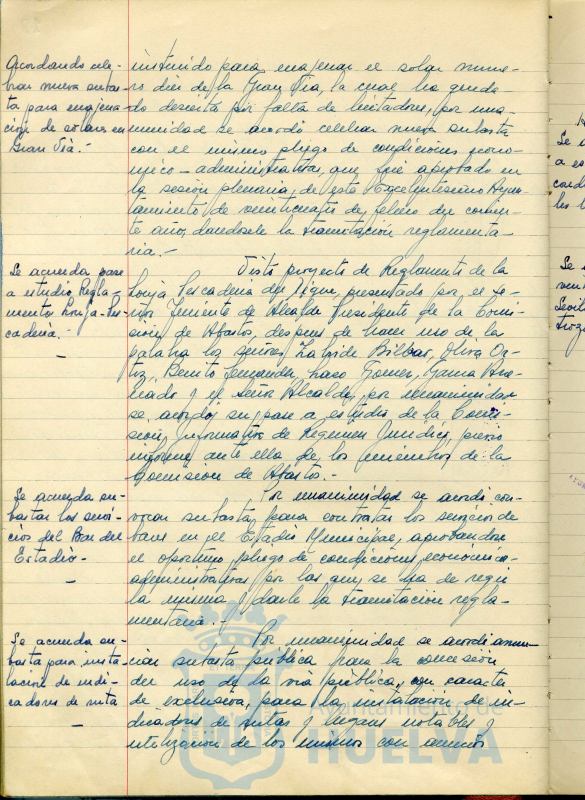 Acordando cele-
brar nueva subas-
ta para enajena-
ción de solares en
Gran Vía.-
instruido para enajenar el solar núme-
ro diez de la Gran Vía, la cual ha queda-
do desierta por falta de licitadores, por una-
nimidad se acordó celebrar nueva subasta
con el mismo pliego de condiciones econó-
mico-administrativas, que fue aprobado en
la sesión plenaria, de este Excelentísimo Ayun-
tamiento de veinticuatro de febrero del corrien-
te año, dándosele la tramitación reglamenta-
ria.-
Se acuerda pase
a estudio Regla-
mento Lonja-Pes-
cadería.-
Visto proyecto de Reglamento de la
Lonja Pescadería del Dique, presentado por el se-
ñor Teniente de Alcalde Presidente de la Comi-
sión de Abastos, después de hacer uso de la
palabra los señores Bilbao, Oliva Or-
tiz, Benito Fernández, Gómez, García
y el señor Alcalde, por unanimidad
se acordó su pase a estudio de la Comi-
sión Informativa de Régimen Jurídico, previo
informe ante ella de los miembros de la
Comisión de Abastos.-
Se acuerda su-
bastar los servi-
cios del Bar del
Estadio.-
Por unanimidad se acordó con-
vocar subasta para contratar los servicios de
bares en el Estadio Municipal, aprobándose
el oportuno pliego de condiciones económico-
administrativas por las que se ha de regir
la misma y darle la tramitación regla-
mentaria.-
Se acuerda su-
basta para insta-
lación de indi-
cadores de ruta
Por unanimidad se acordó anun-
ciar subasta pública para la concesión
del uso de la vía pública, con carácter
de exclusiva, para la instalación de in-
dicadores de rutas y lugares notables y
utilización de los mismos con anuncios
Ayuntamiento de
HUELVA